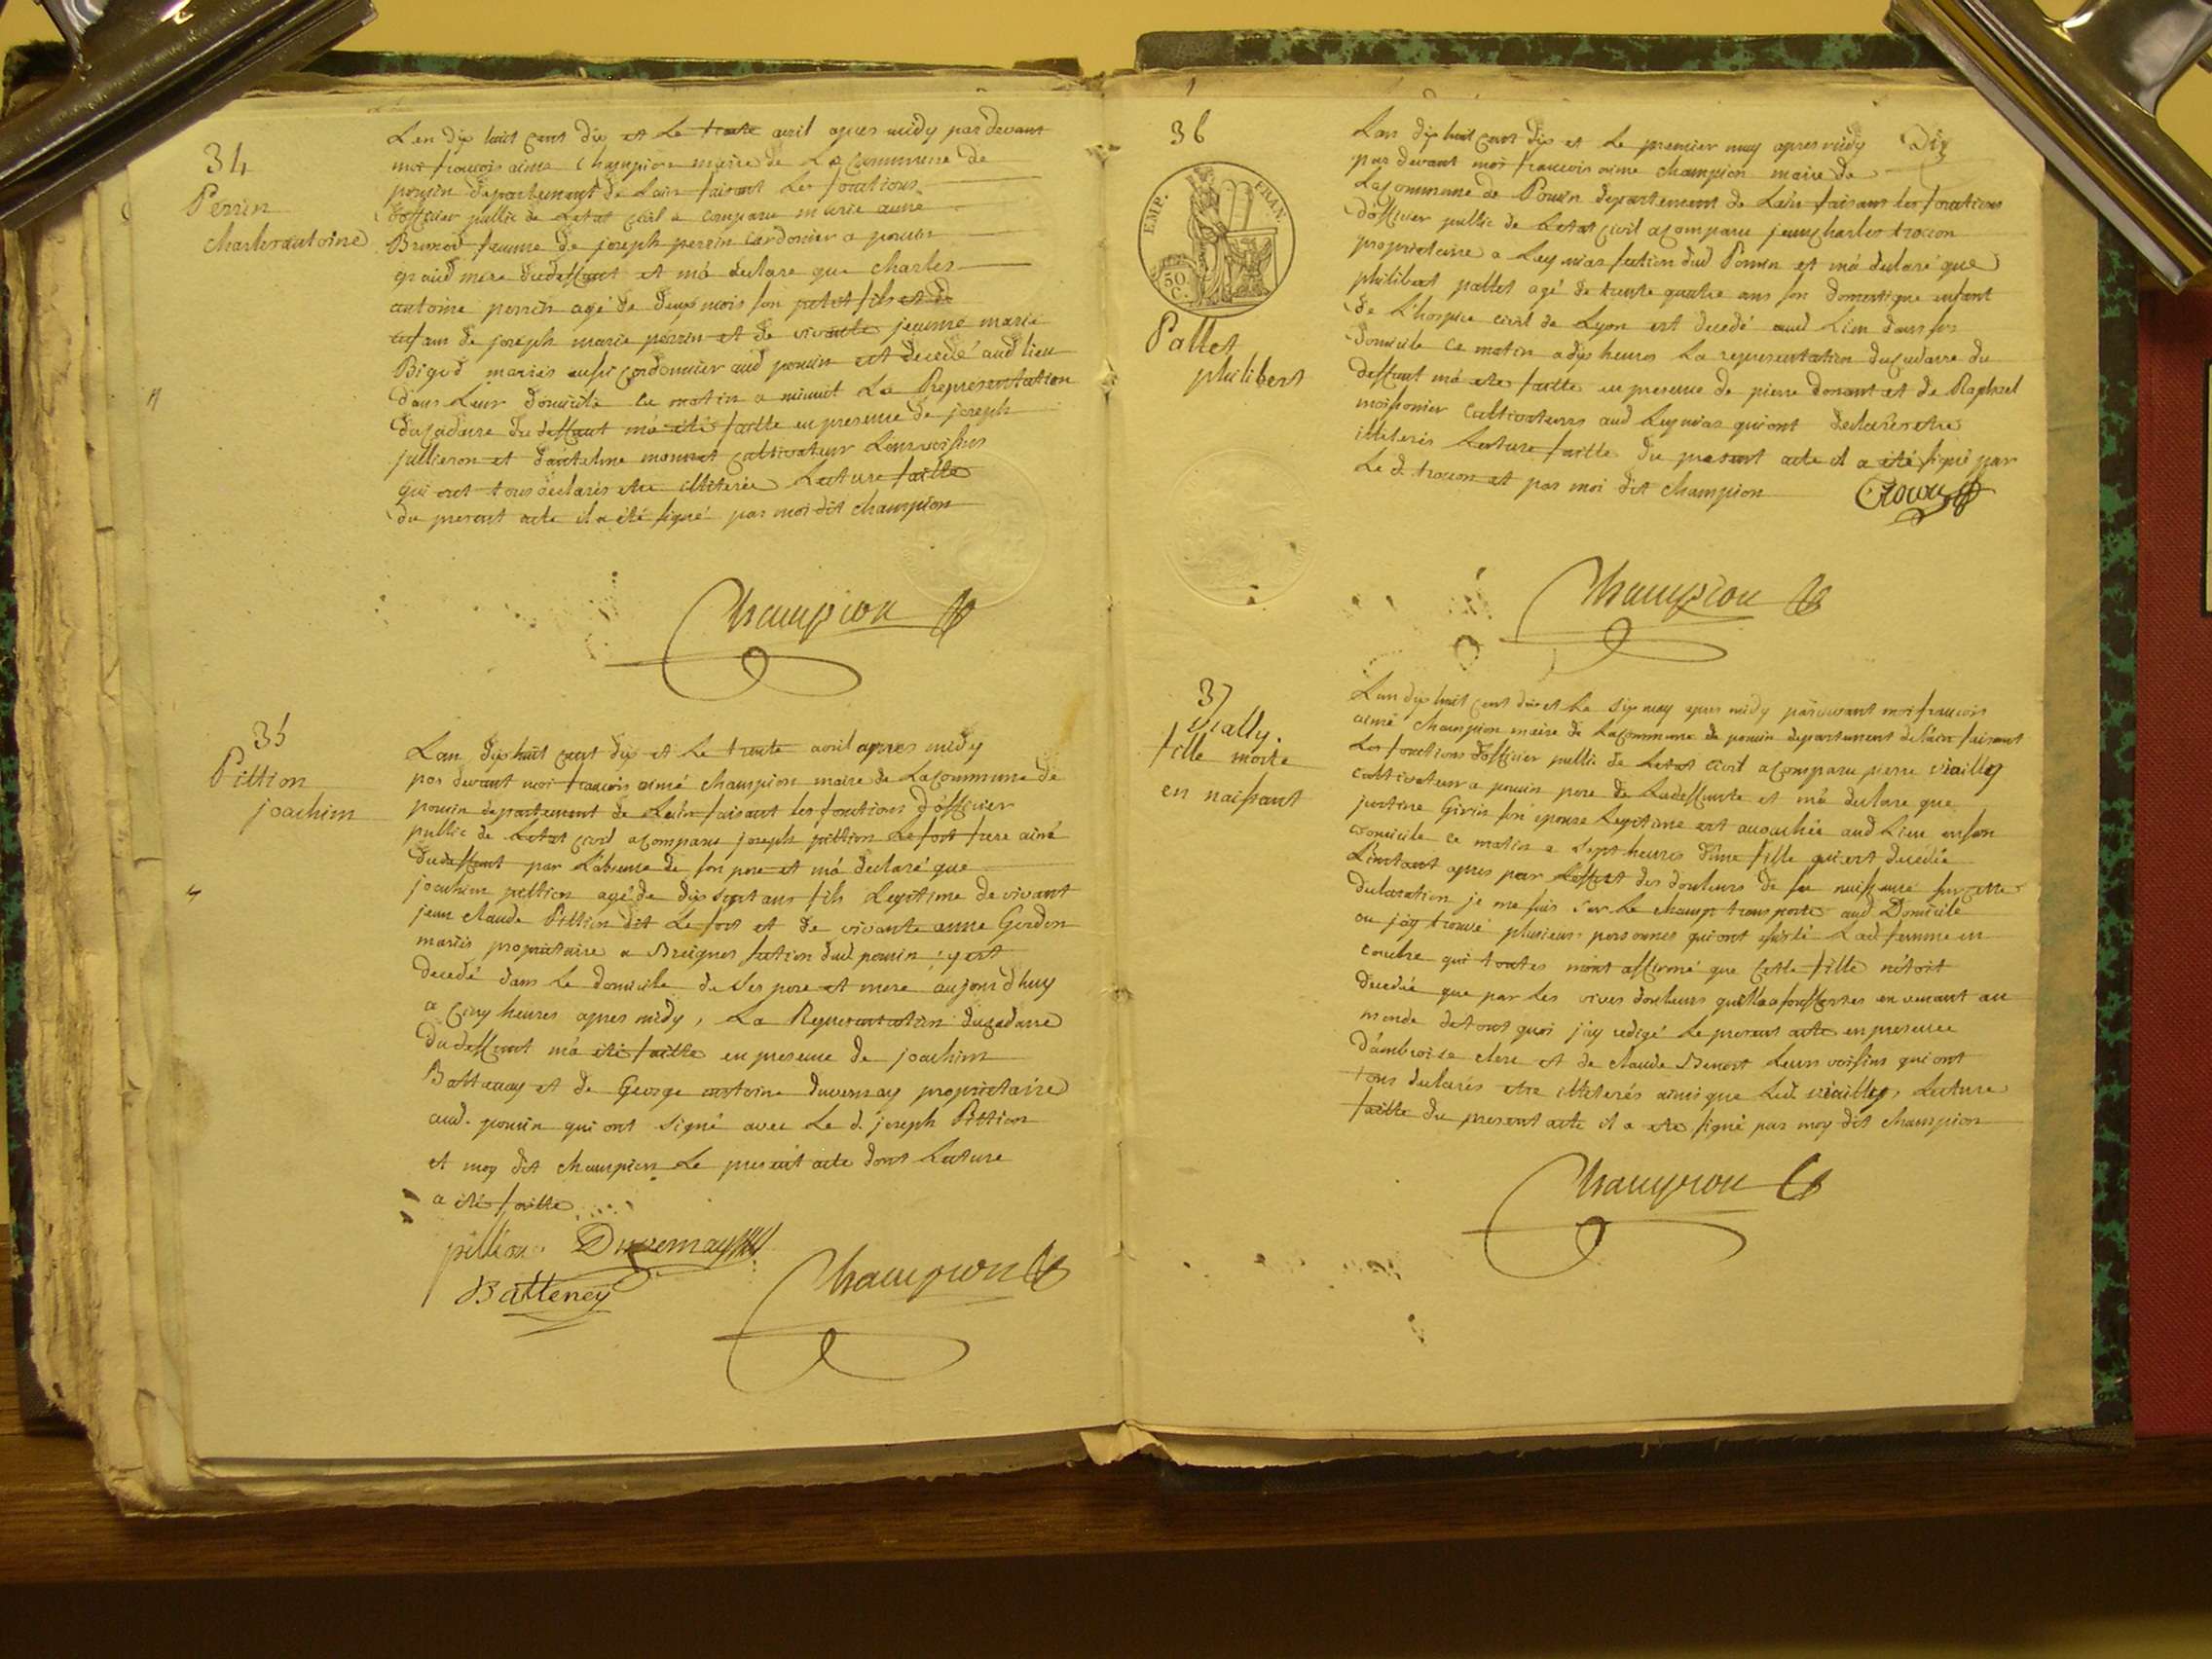 34
Perrin
charles antoine
Lan dix huit cent dix et le trente avril apres midy par devant
moi francois aimé Champion maire de La Commune de
poncin departement de Lain faisant les fonctions
dofficier public de Letat civil a comparu marie anne
femme de joseph perrin cordonier a poncin
grand mere dudeffunt et má declare que charles
antoine perrin agé de deux mois son petit fils et de
enfant de joseph marie perrin et de vivante jeanne marie
mariés aussi cordonnier aud poncin est decedé aud lieu
dans Leur domicile ce matin a minuit La Representation
ducadavre du deffunt má été faitte en presence de joseph
jullieron et dantelme monnet cultivateur Leurs voisins
qui ont tous declarés etre illiterés Lecture faitte
du present acte il a été signé par moi dit champion
Champion
35
Pittion
joachim
Lan dix huit cent dix et le trente avril apres midy
par devant moi francois aimé champion maire de Lacommune de
poncin departement de Lain faisant les fonctions dófficier
public de Letat civil acomparu joseph pittion Le fort frere ainé
dudeffunt par Lábsence de son pere et má declaré que
joachim pittion agé de dix sept ans fils Legitime de vivant
jean claude Pittion dit Le fort et de vivante anne
mariés proprietaire a Breignes section dud poncin : y est
decedé dans Le domicile de ses pere et mere aujourdhuy
a cinq heures apres midy, La Representation ducadavre
dudeffunt má été faitte en presence de joachim
Battenay et de George antoine duvernay proprietaire
aud. poncin qui ont signé avec Le d. joseph Pittion
et moy dit champion Le present acte dont Lecture
a été faitte
pittion Duvernay
Batteney
Champion
36
EMP. FRAN.
50 C.
Pallet
philibert
Dix
Lan dix huit cent dix et le premier may apres midy
par devant moi francois aimé champion maire de
Lacommune de Poncin departement de Lain faisant les fonctions
dofficier public de Letat civil acomparu jean charles trocon
proprietaire a Leymias section dud Poncin et má declaré que
philibert pallet agé de trente quatre ans son domestique enfant
de Lhospice civil de Lyon est decedé aud Lieu dans son
domicile ce matin a dix heures La representation ducadavre du
deffunt má ete faitte en presence de pierre donant et de Raphael
moissonier Cultivateurs aud Leymias qui ont declarés etre
illiterés Lecture faitte du present acte il a été signé par
Le d. trocon et par moi dit champion
Trocon
Champion
37
Vially.
fille morte
en naissant
Lan dix huit cent dix et Le six may apres midy pardevant moi francois
aimé Champion maire de Lacommune de poncin departement de Lain faisant
Les fonctions dofficier public de Letat civil acomparu pierre viailly
cultivateur a poncin pere de Ladeffunte et má declare que
justine Girin son épouse Legitime est accouchée aud Lieu en son
domicile ce matin a sept heures dúne fille qui est decedée
Linstant apres par Leffort des douleurs de sa naissance sur cette
declaration je me suis sur Le champ transporté aud Domicile
ou jáy trouvé plusieurs personnes qui ont assisté Lad femme en
couche qui toutes mónt affirmé que cette fille nétoit
decedée que par Les vives douleurs quelle a souffertes en venant au
monde de tout quoi jáy redigé Le present acte en presence
dámbroise clere et de claude Benoit Leurs voisins qui ont
tous declarés etre illiterés ainsi que Led. viailly, Lecture
faitte du present acte il a ete signé par moy dit champion
Champion